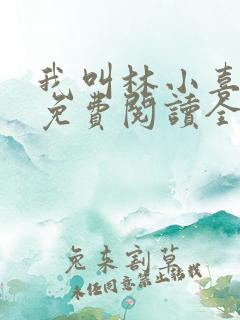 我叫林小喜
免費閱讀全
兔来割草
未经同意禁止转载